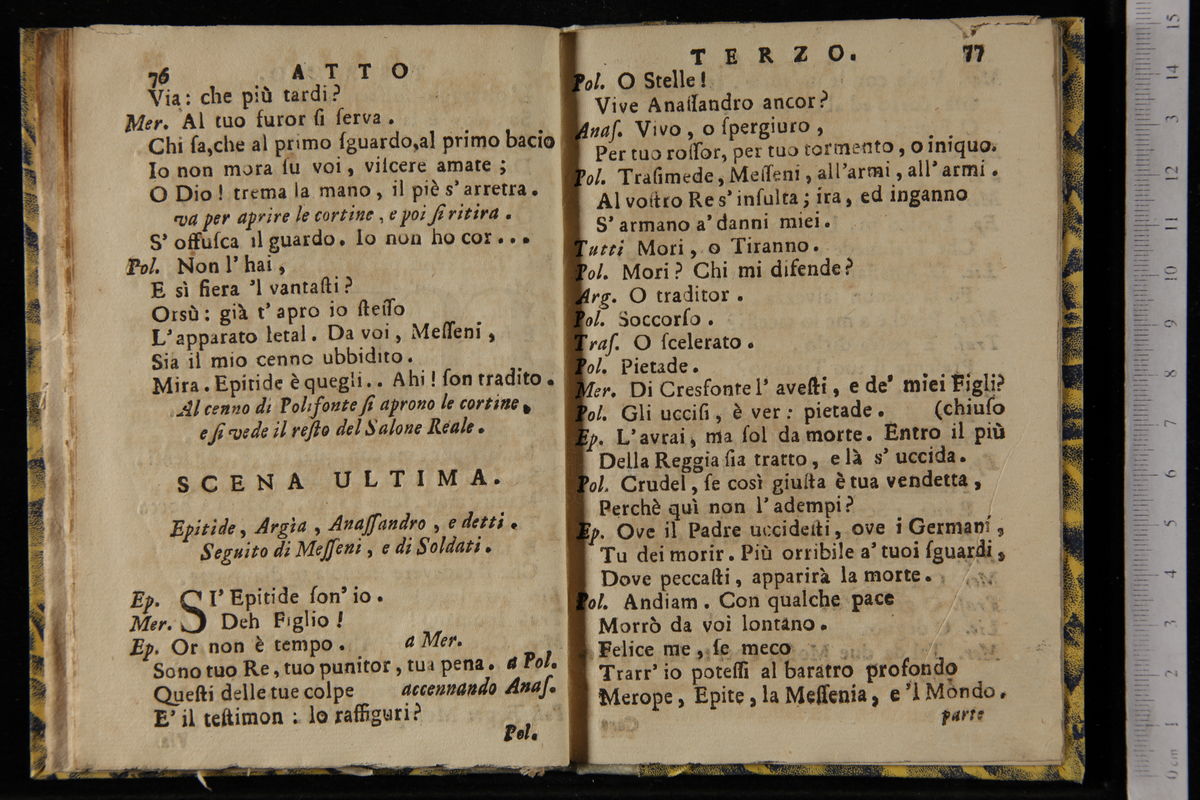 76 ATTO
Via: che più tardi?
Mer. Al tuo furor ſi ſerva.
Chi ſa, che al primo ſguardo, al primo bacio
Io non mora ſu voi, viſcere amate;
O Dio! trema la mano, il piè s'arretra.
va per aprire le cortine, e poi ſi ritira.
S' offuſca il guardo. Io non ho cor...
Pol. Non l'hai,
E sì fiera 'l vantaſti?
Orsù: già t' apro io ſteſſo
L'apparato letal. Da voi, Meſſeni,
Sia il mio cenno ubbidito.
Mira. Epitide è quegli.. Ahi! ſon tradito.
Al cenno di Polifonte ſi aprono le cortine,
e ſi vede il reſto del Salone Reale.
SCENA ULTIMA.
Epitide, Argia, Anaſſandro, e detti.
Seguito di Meſſeni, e di Soldati.
Ep. SI' Epitide ſon' io.
Mer. Deh Figlio!
Ep. Or non è tempo. a Mer.
Sono tuo Re, tuo punitor, tua pena. a Pol.
Queſti delle tue colpe accennando Anaſ.
E' il teſtimon: lo raffiguri?
Pol.
TERZO. 77
Pol. O Stelle!
Vive Anaſſandro ancor?
Anaſ. Vivo, o ſpergiuro,
Per tuo roſſor, per tuo tormento, o iniquo.
Pol. Traſimede, Meſſeni, all'armi, all' armi.
Al voſtro Re s' inſulta; ira, ed inganno
S' armano a' danni miei.
Tutti Mori, o Tiranno.
Pol. Mori? Chi mi difende?
Arg. O traditor.
Pol. Soccorſo.
Traſ. O ſcelerato.
Pol. Pietade.
Mer. Di Cresfonte l' aveſti, e de' miei Figli?
Pol. Gli ucciſi, è ver: pietade. (chiuſo
Ep. L'avrai, ma ſol da morte. Entro il più
Della Reggia ſia tratto, e là s' uccida.
Pol. Crudel, ſe così giuſta è tua vendetta,
Perchè quì non l' adempi?
Ep. Ove il Padre uccideſti, ove i Germani,
Tu dei morir. Più orribile a' tuoi ſguardi,
Dove peccaſti, apparirà la morte.
Pol. Andiam. Con qualche pace
Morrò da voi lontano.
Felice me, ſe meco
Trarr' io poteſſi al baratro profondo
Merope, Epite, la Meſſenia, e 'l Mondo.
parte